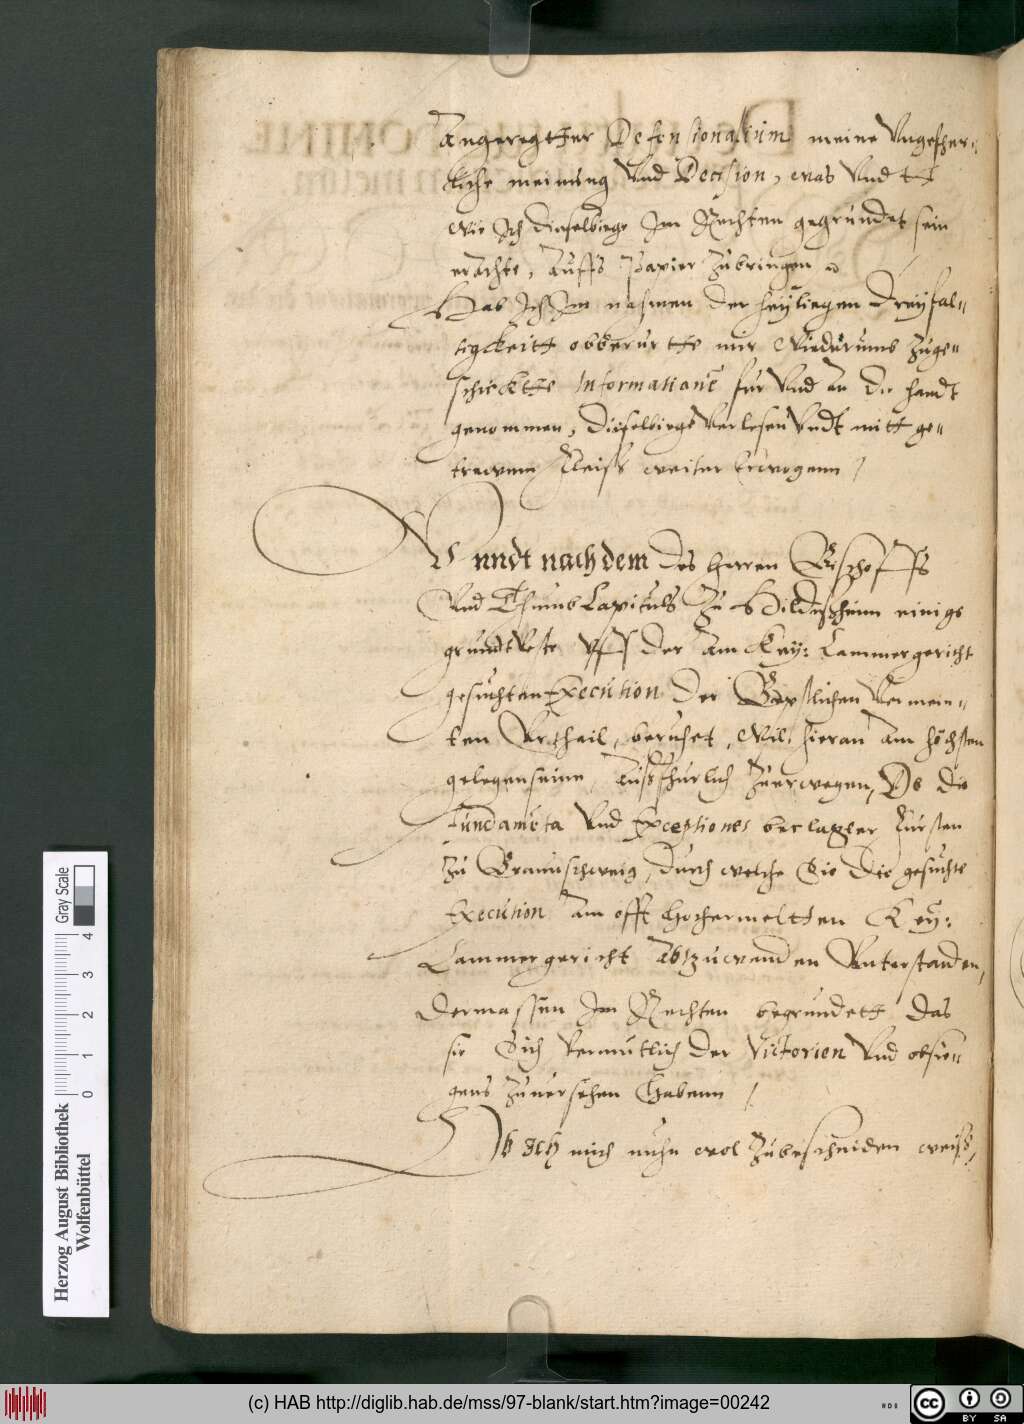 angeregtter Defensionalium meine Ungefher=
liche meinung Und Decision, was Und tt
Wie Ich dieselbiege Im Rechten gegrundet sein
erachte, Auffs Papier Zubringen
Hab Ich Im nahmen der heyliegen Dreyfal=
tigckeitt obberurtte mir Wiedrumb Zuge=
schicktte Informationes fur Und An die handt
genommen, dieselbiege Verlesen Undt mitt ge=
trewem Fleiss weiter Erwogenn /
Unndt nach dem des herren Bischoffs
Und Thumb Capituls Zu Hildesheim einige
grundtveste Uff der Am Key: Cammergericht
gesuchten Execution der Bepstlichen Vermein=
ten Urtheil, beruhet, Wil hieran Am höchsten
gelegen seinn, Aussfhurlich Zuerwegen, Ob die
Fundamenta Und Exceptiones beclagter Fursten
Zu Braunschweig, durch welche Sie die gesuchte
Execution Am offt hochermeltten Key:
Cammergericht Abtzuwenden Unterstanden,
dermassen Im Rechten begrundett das
sie Sich Vermutlich der Victorien Und obsie=
gens Zuversehen habenn /
Ob Ich mich nuhn wol Zubescheiden weiss,
Herzog August Bibliothek
Wolfenbüttel
Gray Scale
0 1 2 3 4
(c) HAB http://diglib.hab.de/mss/97-blank/start.htm?image=00242
cc BY SA